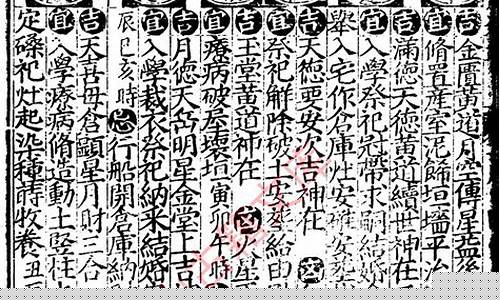 吉 金匱黃道月空傳星益後
宜 脩置產室泥飾垣墻平治
吉 滿德天德黃道續世神在
宜 入學祭祀冠帶求嗣結婚
舉入宅作倉庫灶安碓
吉 天德要安次吉神在
宜 祭祀解除破土安葬給由
吉 玉堂黃道神在
宜 療病破屋壞垣寅卯午時
吉 月德天喦明星金堂上吉
宜 入學裁衣祭祀納采結婚
辰巳亥時 忌 行船開倉庫納
吉 天喜母倉顯星月財三合
宜 入學療病脩造動土豎柱
定磉祀灶起染種蒔牧養丑